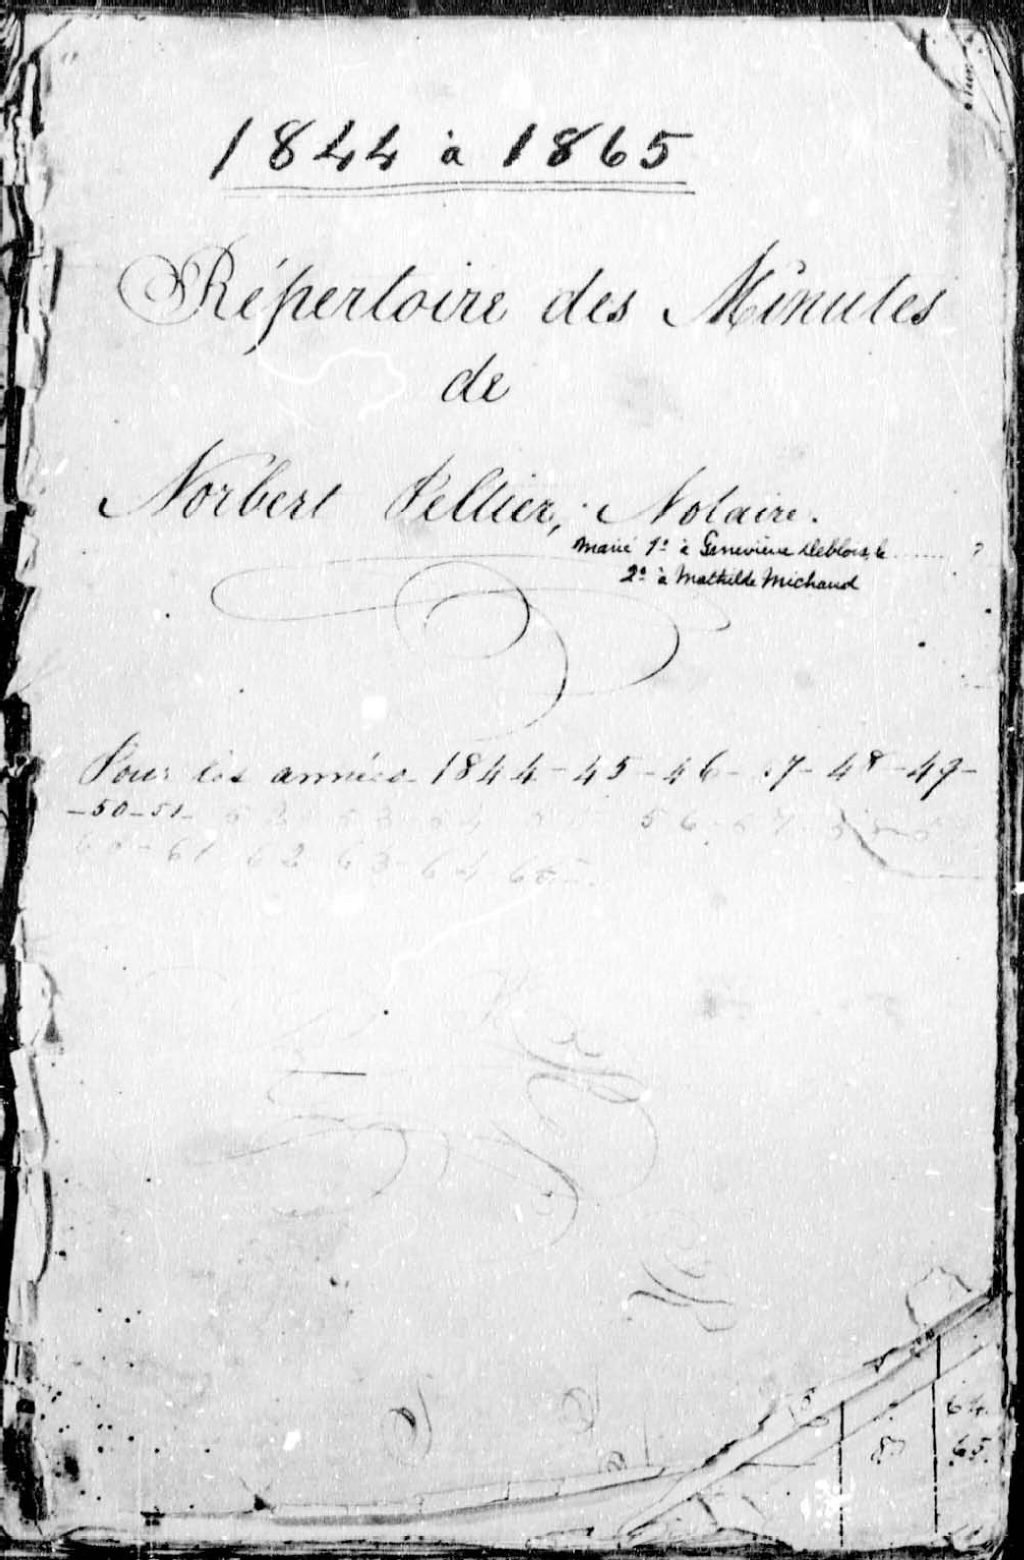 1844 à 1865
Répertoire des Minutes
de
Norbert Peltier, Notaire.
Marié 1º à Geneviève Deblois, le ........ ?
2º à Mathilde Michaud
Pour les années 1844-45-46-47-48-49-
-50-51- 52 53-54 55 56-57-58-5
60-61 62 63-64 65-.
64.
65.